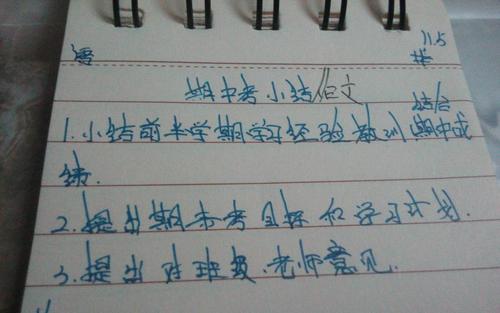 11.5
语
期中考小结作文
结合
1.小结前半学期学习经验教训,期中成
绩.
2.提出期末考目标和学习计划.
3.提出对班级.老师意见.